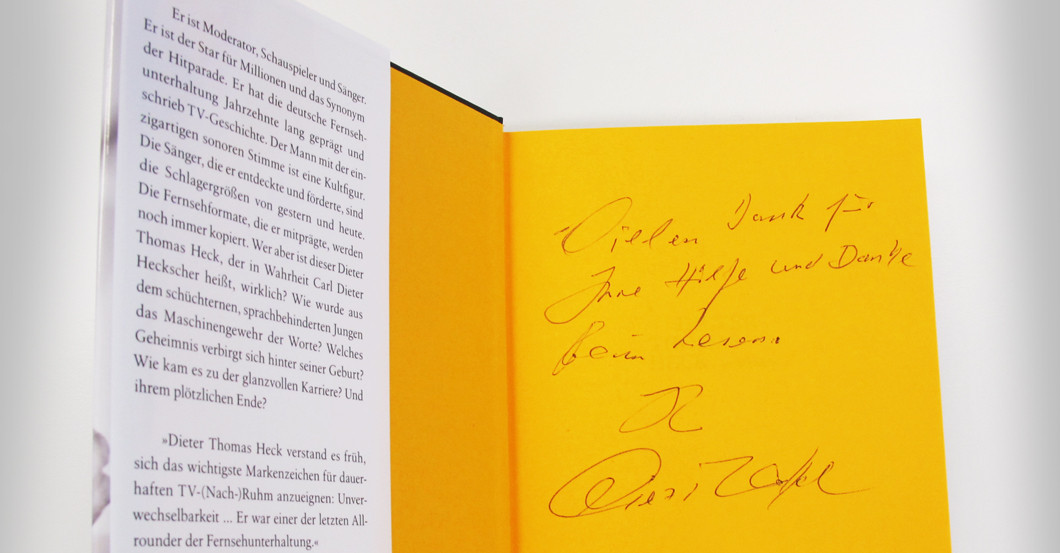 Er ist Moderator, Schauspieler und Sänger.
Er ist der Star für Millionen und das Synonym
der Hitparade. Er hat die deutsche Fernseh-
unterhaltung Jahrzehnte lang geprägt und
schrieb TV-Geschichte. Der Mann mit der ein-
zigartigen sonoren Stimme ist eine Kultfigur.
Die Sänger, die er entdeckte und förderte, sind
die Schlagergrößen von gestern und heute.
Die Fernsehformate, die er mitprägte, werden
noch immer kopiert. Wer aber ist dieser Dieter
Thomas Heck, der in Wahrheit Carl Dieter
Heckscher heißt, wirklich? Wie wurde aus
dem schüchternen, sprachbehinderten Jungen
das Maschinengewehr der Worte? Welches
Geheimnis verbirgt sich hinter seiner Geburt?
Wie kam es zu der glanzvollen Karriere? Und
ihrem plötzlichen Ende?
»Dieter Thomas Heck verstand es früh,
sich das wichtigste Markenzeichen für dauer-
haften TV-(Nach-)Ruhm anzueignen: Unver-
wechselbarkeit ... Er war einer der letzten All-
rounder der Fernsehunterhaltung.«
Vielen Dank für
Ihre Hilfe und Danke
beim Lesen.